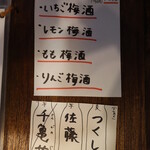 ・いちご梅酒
・レモン梅酒
・もも梅酒
・りんご梅酒
つくし
佐藤
千亀